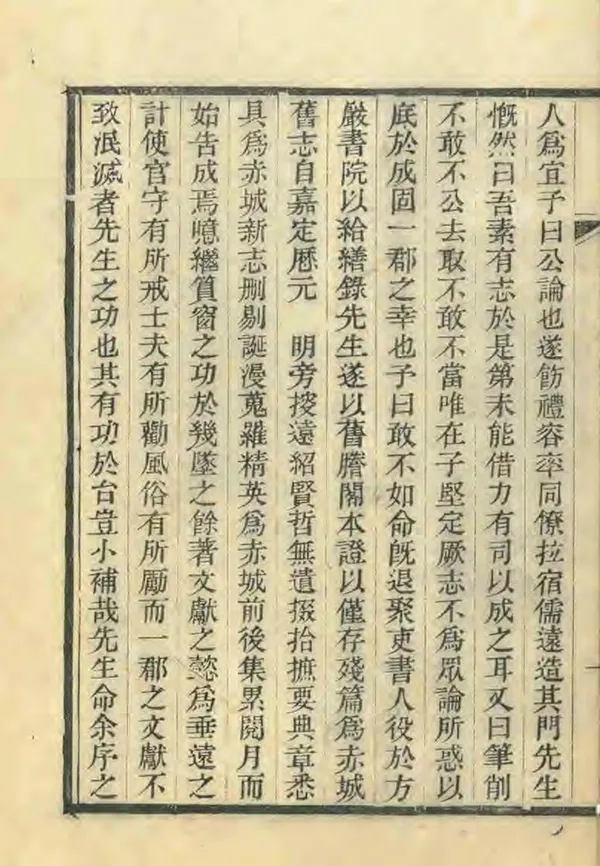 人爲宜予曰公論也遂飭禮容率同僚拉宿儒遠造其門先生
慨然曰吾素有志於是第未能借力有司以成之耳又曰筆削
不敢不公去取不敢不當唯在子堅定厥志不爲眾論所惑以
底於成固一郡之幸也予曰敢不如命旣退聚吏書人役於方
嚴書院以給繕錄先生遂以舊謄閣本證以僅存殘篇爲赤城
舊志自嘉定曆元　明旁搜遠紹賢哲無遺掇拾摭要典章悉
具爲赤城新志删剔誕漫蒐羅精英爲赤城前後集累閱月而
始告成焉噫繼篔窗之功於幾墜之餘著文獻之懿爲垂遠之
計使官守有所戒士夫有所勸風俗有所勵而一郡之文獻不
致泯滅者先生之功也其有功於台豈小補哉先生命余序之